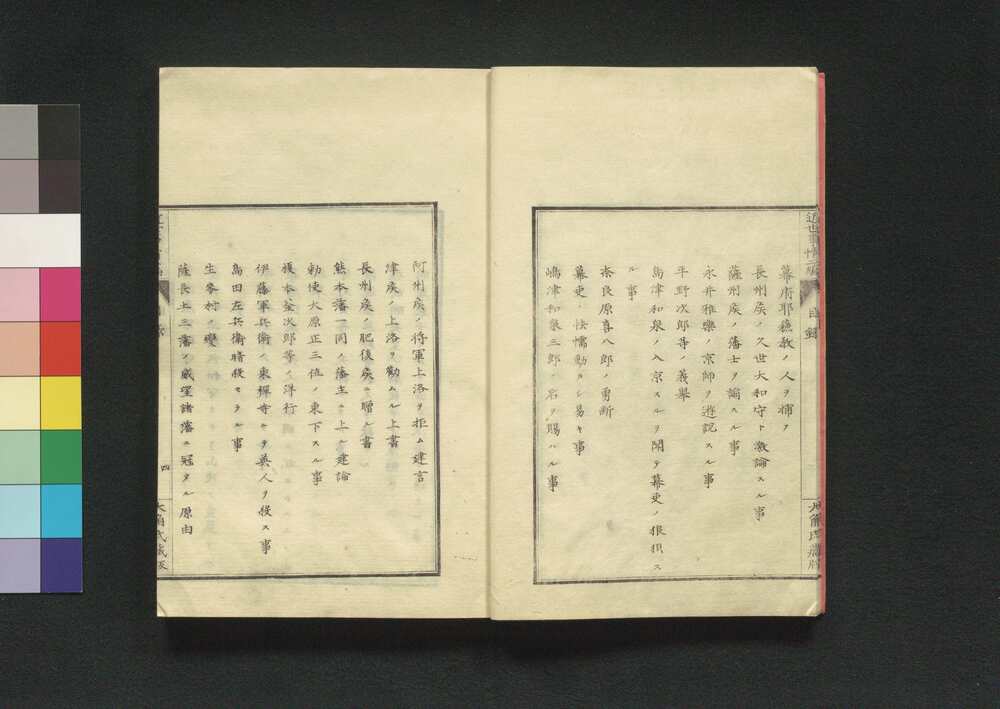 近世事情二編
目録
幕府耶蘓教ノ人ヲ捕フ
長州矦ノ久世大和守ト激論スル事
薩州矦ノ藩士ヲ諭スル事
永井雅樂ノ京師ヲ遊説スル事
平野次郎等ノ義舉
島津和泉ノ入京スルヲ聞テ幕吏ノ狼狽ス
ル事
奈良原喜八郎ノ勇断
幕吏ノ怯懦動スレ易キ事
嶋津和泉三郎ノ名ヲ賜ハル事
阿州矦ノ将軍上洛ヲ拒ム建言
津矦ノ上洛ヲ勸ムル上書
長州矦ノ肥後矦ニ贈ル書
熊本藩一同ノ藩主ニ上ル建論
勅使大原正三位ノ東下スル事
榎本釜次郎等ノ洋行
伊藤軍兵衛ノ東禪寺ニテ英人ヲ殺ス事
島田左兵衛暗殺セラル事
生麥村ノ變
薩長土三藩ノ威望諸藩ニ冠タル原由
四